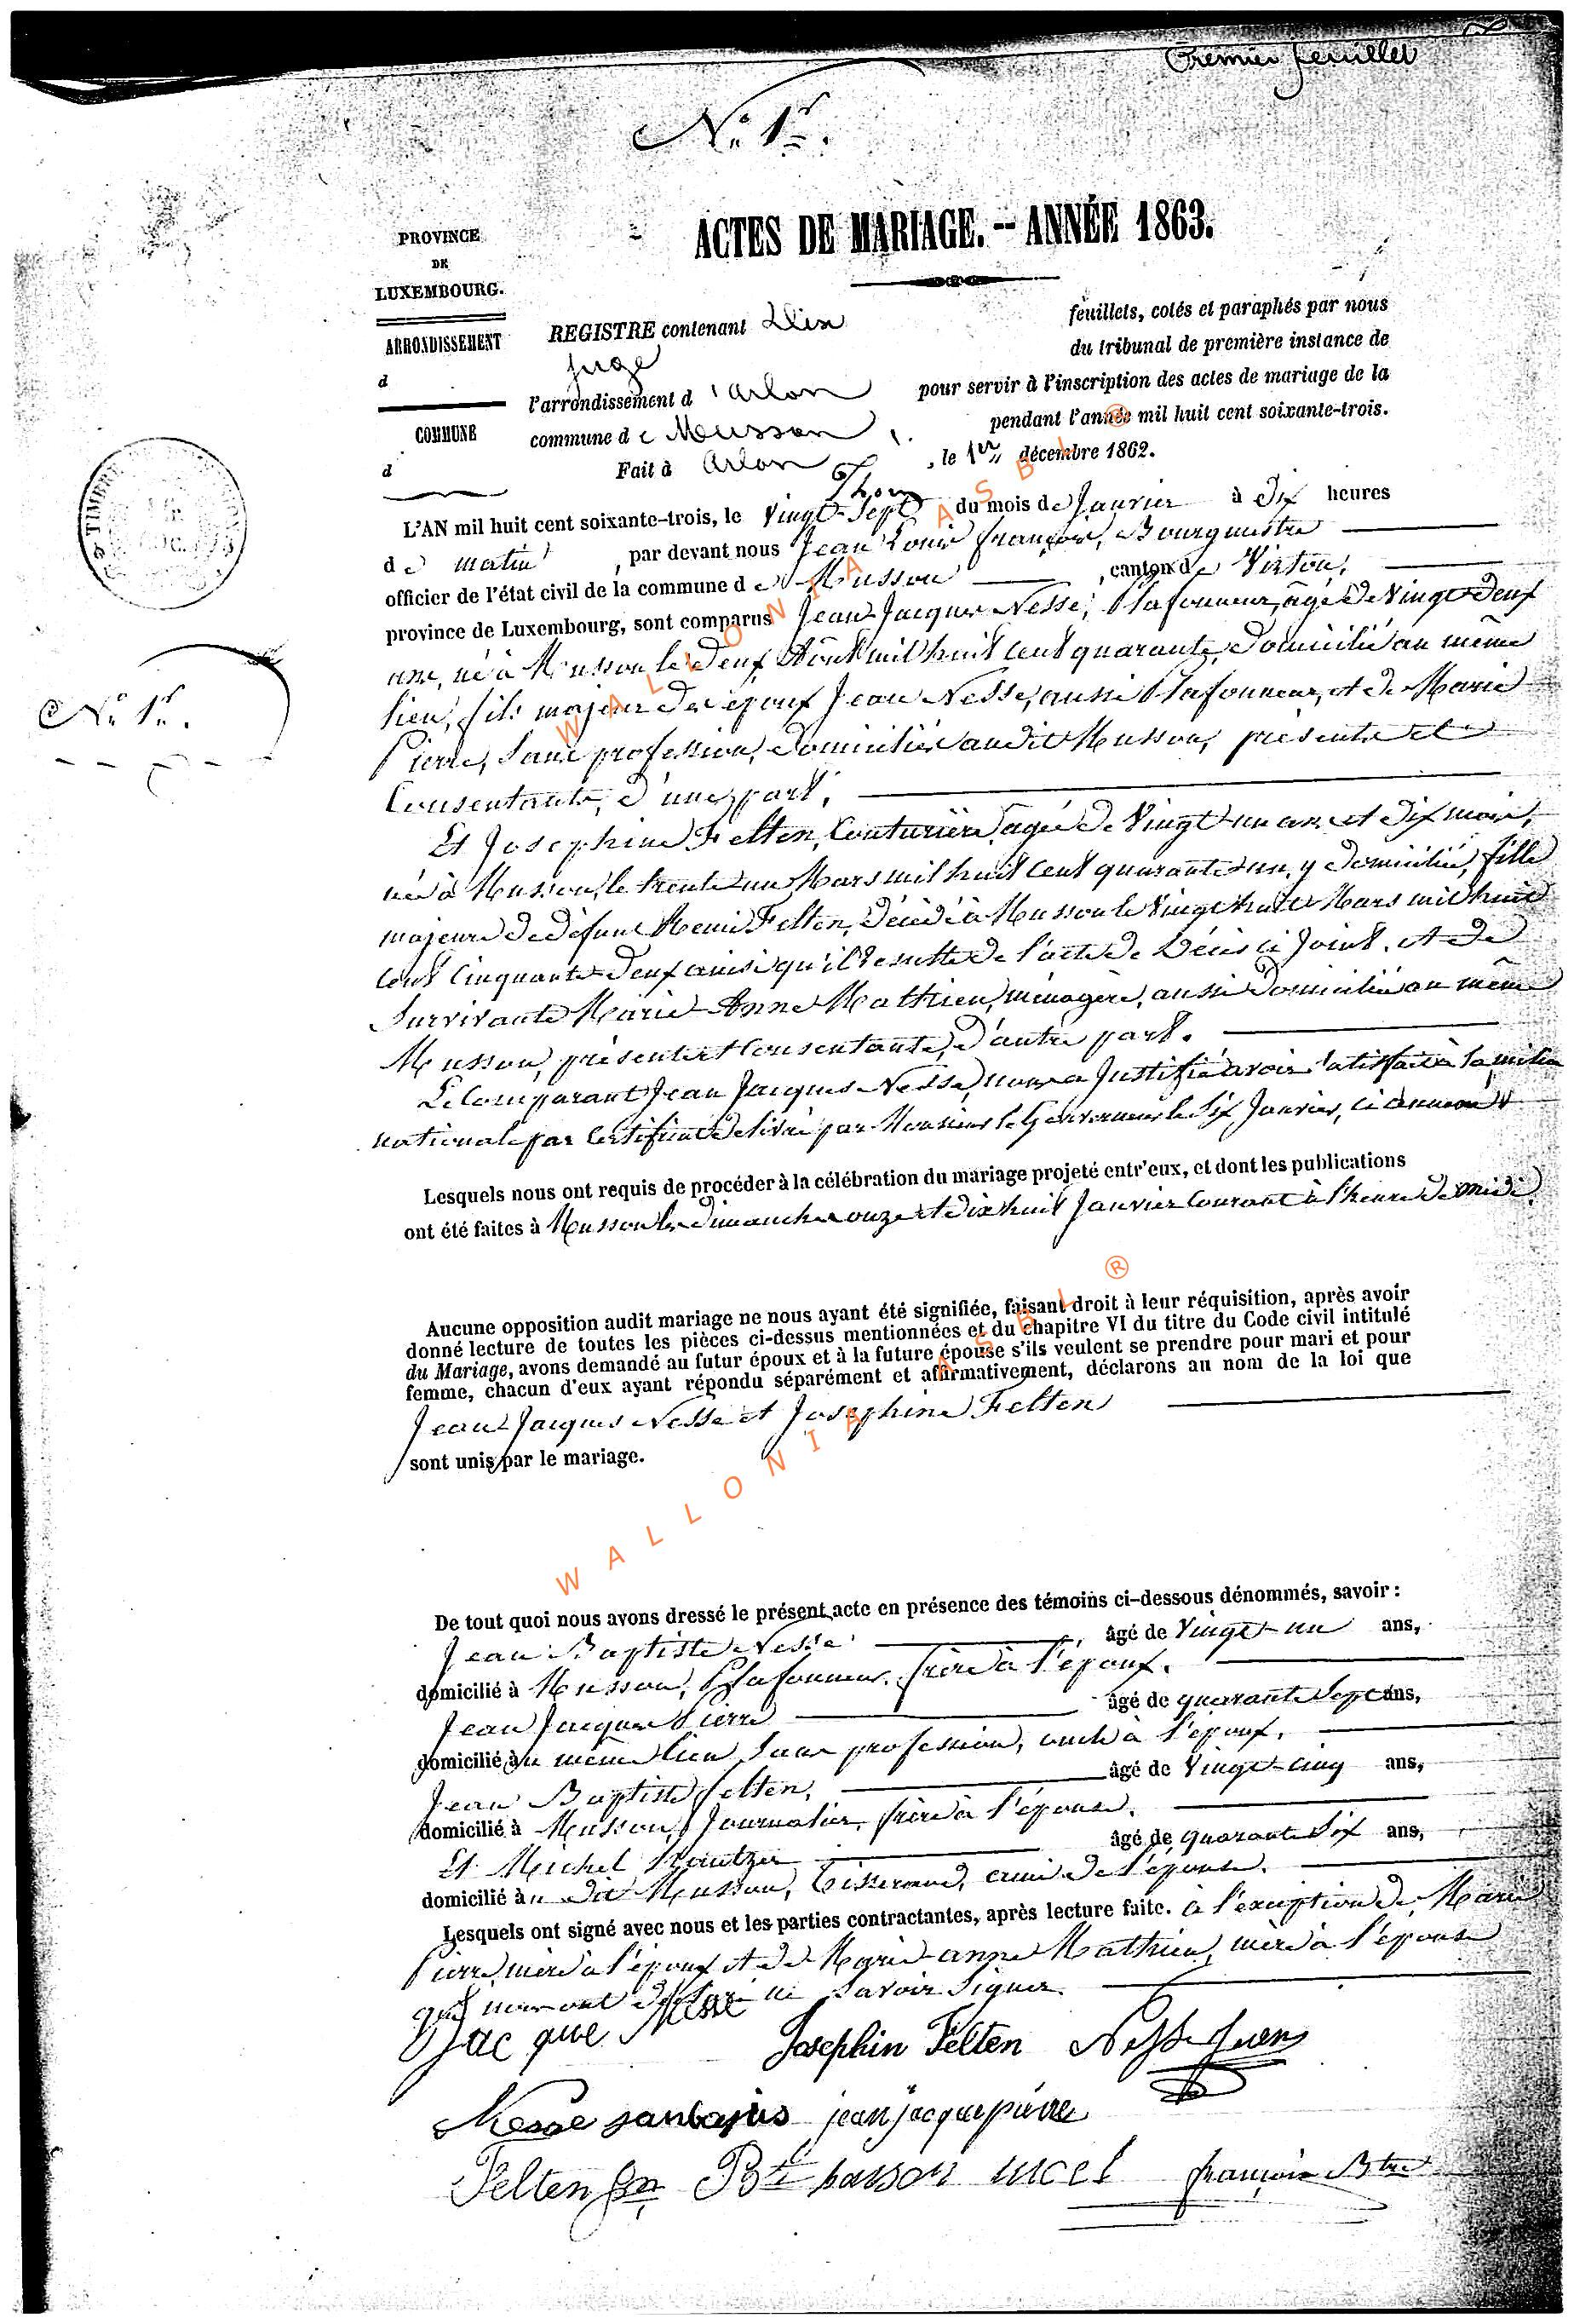 Premier feuillet
N° 1er.
PROVINCE
DE
LUXEMBOURG.
ARRONDISSEMENT
d
COMMUNE
d
ACTES DE MARIAGE. -- ANNÉE 1863.
REGISTRE contenant Dix feuillets, cotés et paraphés par nous
Juge du tribunal de première instance de
l'arrondissement d'Arlon pour servir à l'inscription des actes de mariage de la
commune de Musson, pendant l'année mil huit cent soixante-trois.
Fait à Arlon, le 1er décembre 1862.
TIMBRE
N° 1er.
L'AN mil huit cent soixante-trois, le Vingt-Sept du mois de Janvier à Dix heures
de matin, par devant nous Jean Louis François, Bourgmestre
officier de l'état civil de la commune de Musson, canton de Virton,
province de Luxembourg, sont comparus Jean Jacques Nesse, Plafonneur, âgé de Vingt-deux
ans, né à Musson le deux Août mil huit cent quarante, domicilié au même
lieu, fils majeur des époux Jean Nesse, aussi Plafonneur, et de Marie
Pierre, sans profession, domiciliés audit Musson, présents et
Consentants, d'une part.
Et Josephine Felten, Couturière, agée de Vingt-un ans et dix mois,
née à Musson, le trente un Mars mil huit cent quarante-un, y domiciliée, fille
majeure de défunt Remi Felten, décédé à Musson le Vingt huit Mars mil huit
cent cinquante-deux ainsi qu'il resulte de l'acte de Décès ci Joint. et de
Survivante Marie-Anne Mathieu, ménagère, aussi domiciliée au même
Musson, présente et Consentante, d'autre part.
Le Comparant Jean Jacques Nesse, nous a Justifié avoir satisfait à la milice
nationale par Certificat délivré par Monsieur le Gouverneur le Six Janvier, ci annexé
Lesquels nous ont requis de procéder à la célébration du mariage projeté entr'eux, et dont les publications
ont été faites à Musson les dimanches onze et dix huit Janvier Courant à l'heure de midi
Aucune opposition audit mariage ne nous ayant été signifiée, faisant droit à leur réquisition, après avoir
donné lecture de toutes les pièces ci-dessus mentionnées et du chapitre VI du titre du Code civil intitulé
du Mariage, avons demandé au futur époux et à la future épouse s'ils veulent se prendre pour mari et pour
femme, chacun d'eux ayant répondu séparément et affirmativement, déclarons au nom de la loi que
Jean Jacques Nesse et Josephine Felten
sont unis par le mariage.
De tout quoi nous avons dressé le présent acte en présence des témoins ci-dessous dénommés, savoir :
Jean Baptiste Nesse, âgé de Vingt-un ans,
domicilié à Musson, Plafonneur, frère à l'époux.
Jean Jacques Pierre âgé de quarante Sept ans,
domicilié au même lieu Sans profession, oncle à l'époux.
Jean Baptiste Felten, âgé de Vingt-cinq ans,
domicilié à Musson, Journalier, frère à l'épouse.
Et Michel âgé de quarante Six ans,
domicilié au dit Musson, Tisserand, ami de l'épouse.
Lesquels ont signé avec nous et les parties contractantes, après lecture faite. à l'exception de Marie
Pierre, mère à l'époux et de Marie-anne Mathieu, mère à l'épouse
qui nous ont déclaré ne Savoir Signer.
Jacque Nesse Josephin Felten Nesse Jean
Nesse jean jacque pierre
Felten Jean Bte françois Btre
WALLONIA ASBL ®
WALLONIA ASBL ®